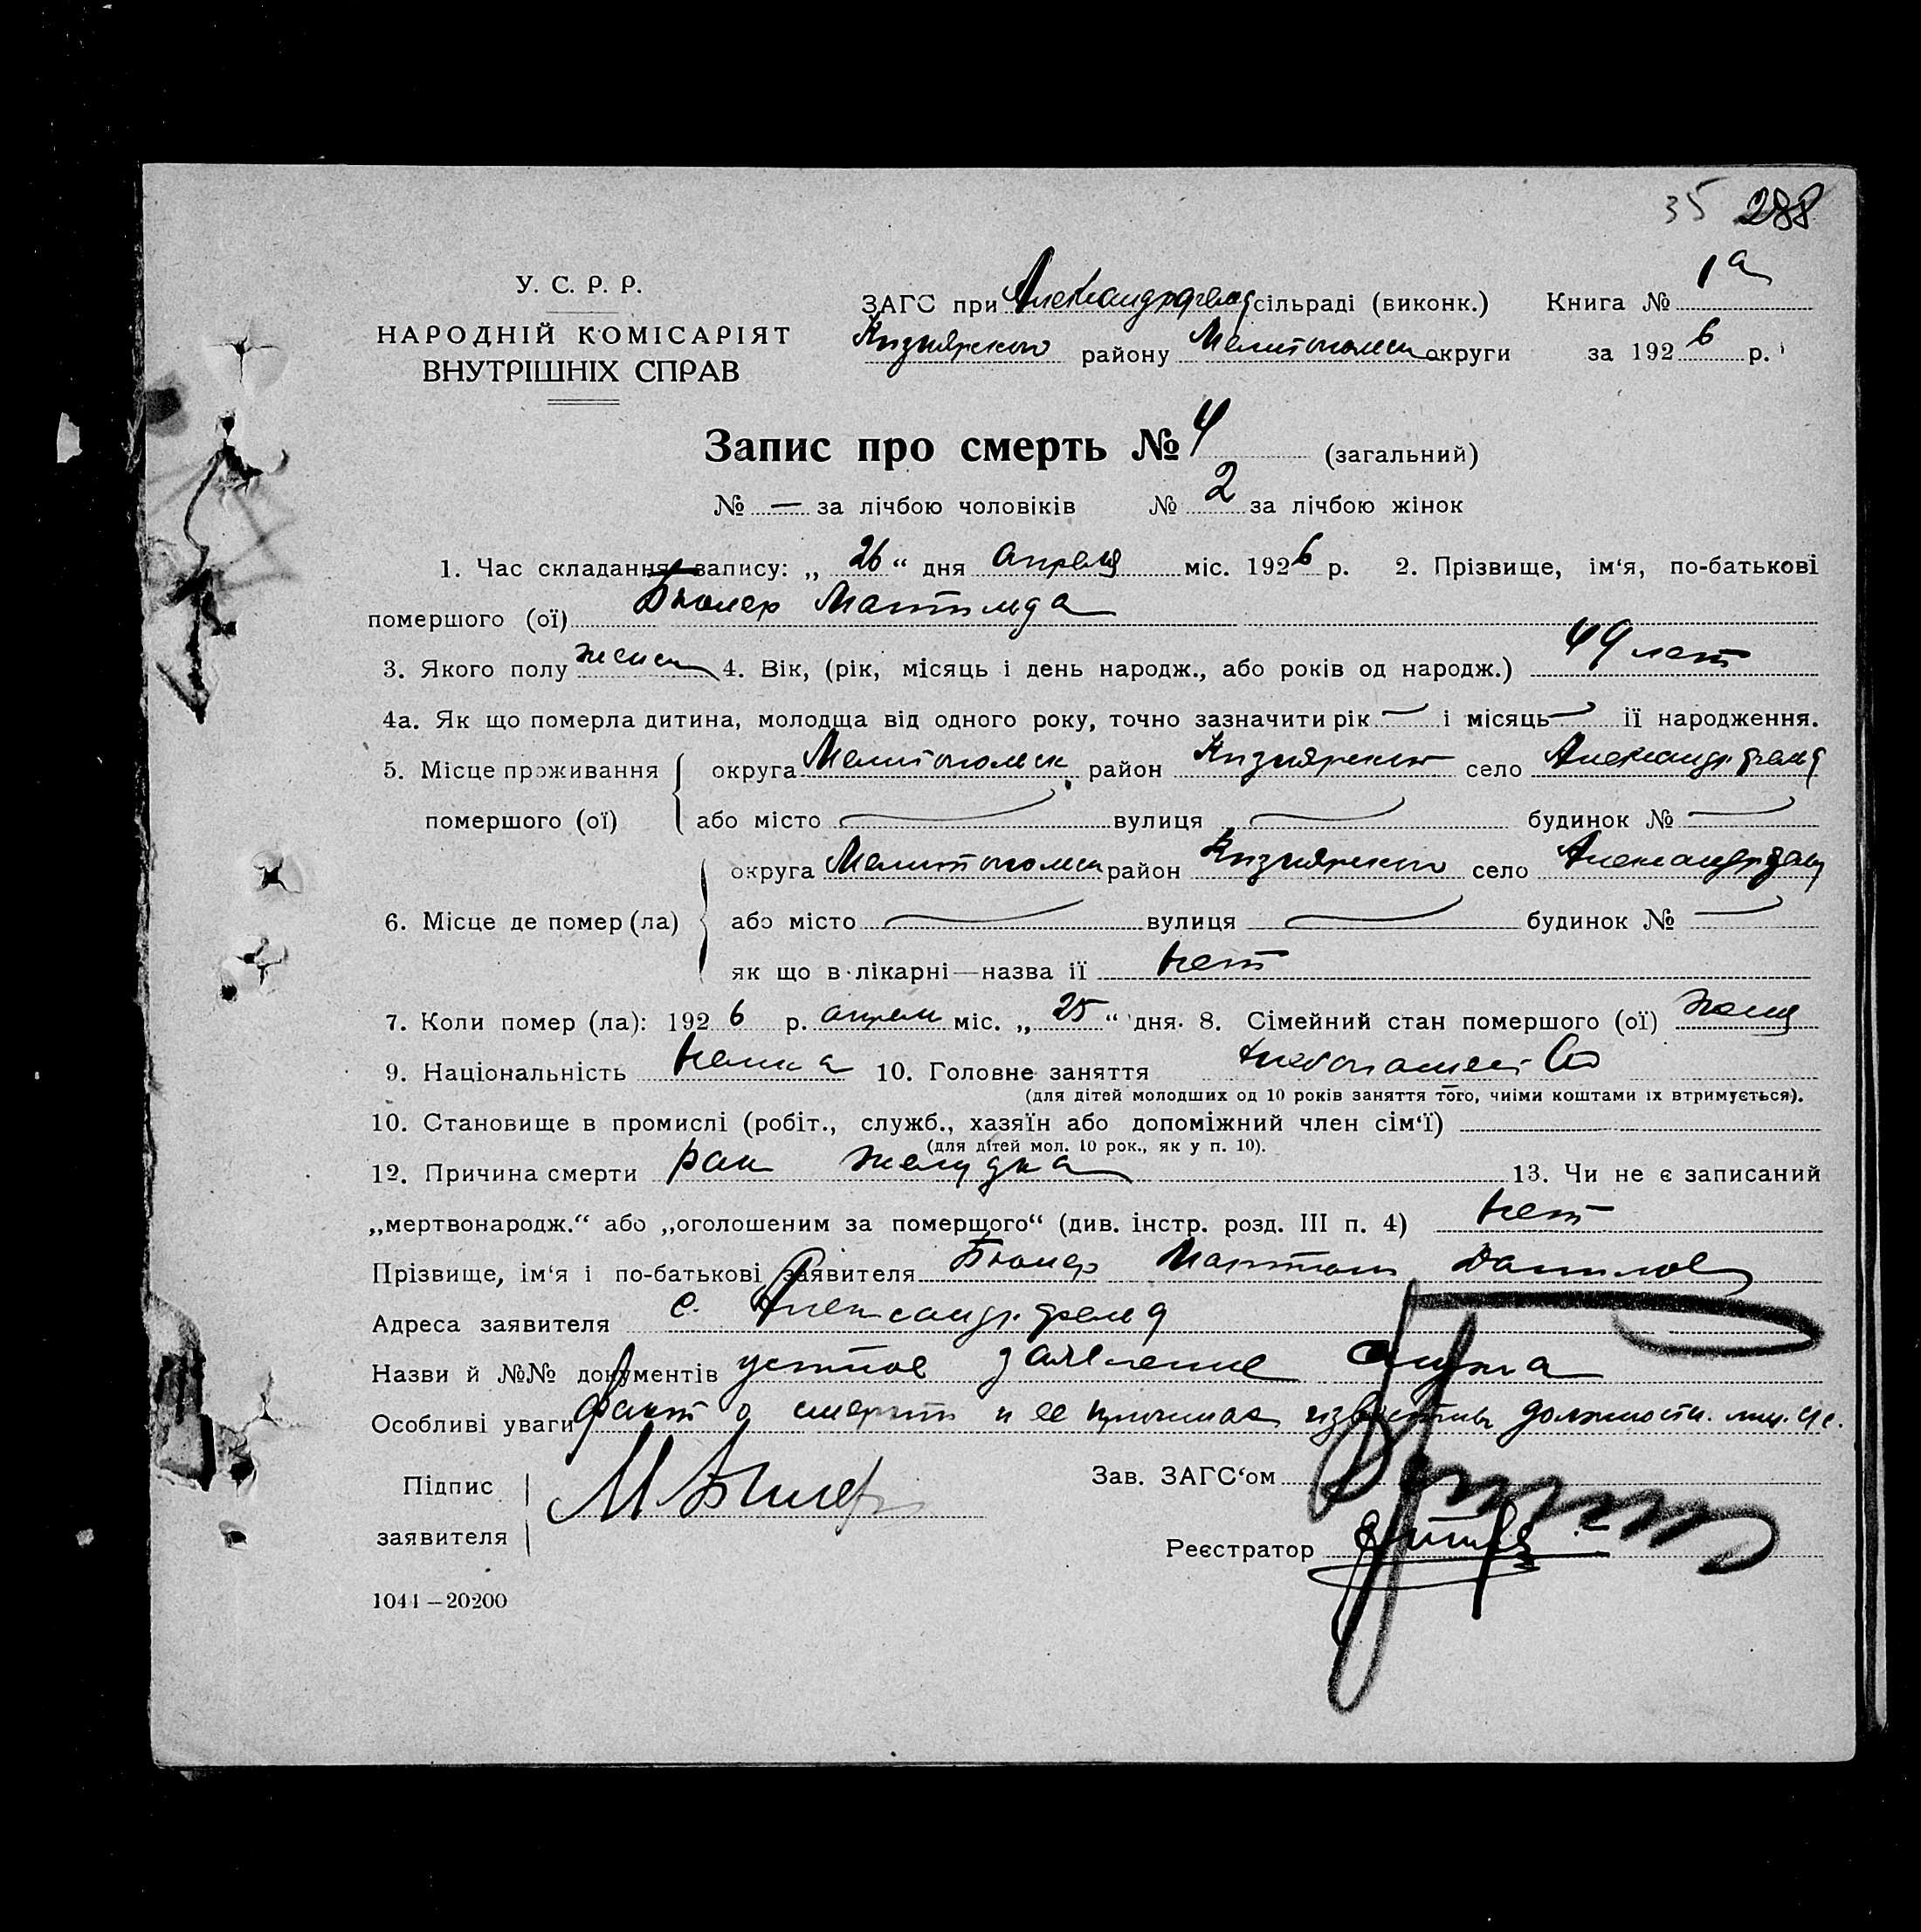 35 288
У. С. Р. Р.
НАРОДНІЙ КОМІСАРІЯТ
ВНУТРІШНІХ СПРАВ
ЗАГС при Александрфельд сільраді (виконк.) Книга № 1а
Кизиярского району Мелитопольск округи за 1926 р.
Запис про смерть № 4 (загальний)
№ — за лічбою чоловіків № 2 за лічбою жінок
1. Час складання запису: „ 26 “ дня апреля міс. 1926 р. 2. Прізвище, ім‘я, по-батькові
помершого (ої) Бюлер Матильда
3. Якого полу женск 4. Вік, (рік, місяць і день народж., або років од народж.) 49 лет
4а. Як що померла дитина, молодща від одного року, точно зазначити рік — і місяць — ії народження.
5. Місце проживання округа Мелитопольск. район Кизиярский село Александрфельд
помершого (ої) або місто — вулиця — будинок № —
округа Мелитопольск район Кизиярский село Александрфельд
6. Місце де помер (ла) або місто — вулиця — будинок № —
як що в лікарні—назва ії нет
7. Коли помер (ла): 1926 р. апрель міс. „ 25 “ дня. 8. Сімейний стан помершого (ої)
9. Національність немка 10. Головне заняття хлебопашество
(для дітей молодших од 10 років заняття того, чиїми коштами їх втримується).
10. Становище в промислі (робіт., служб., хазяїн або допоміжний член сім‘ї)
(для дітей мол. 10 рок., як у п. 10).
12. Причина смерти рак желудка 13. Чи не є записаний
„мертвонародж.“ або „оголошеним за помершого“ (див. інстр. розд. III п. 4) нет
Прізвище, ім‘я і по-батькові заявителя Бюлер Мартын Данилов
Адреса заявителя с. Александрфельд
Назви й №№ документів устное заявление мужа
Особливі уваги факт о смерти и ее причинах известны должностн. лиц. с/с.
Підпис М Бюлер Зав. ЗАГС‘ом
заявителя
Реєстратор
1041—20200